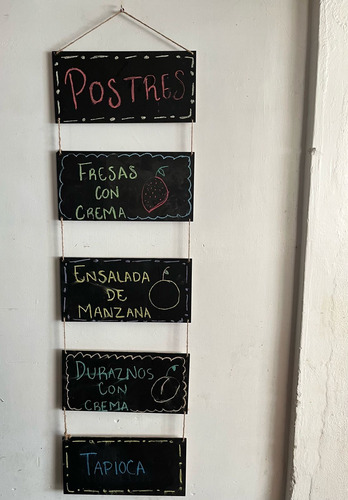 POSTRES
FRESAS
CON
CREMA
ENSALADA
DE
MANZANA
DURAZNOS
CON
CREMA
TAPIOCA